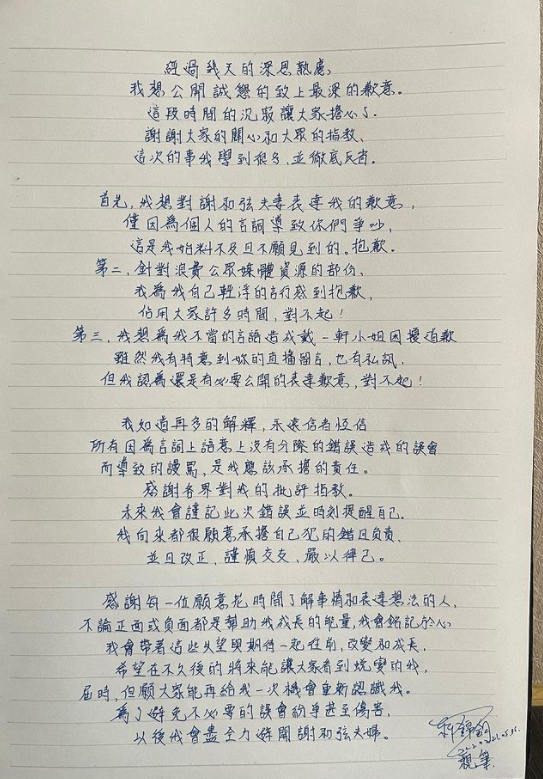 經過幾天的深思熟慮,
我想公開誠懇的致上最深的歉意。
這段時間的沉寂讓大家擔心了.
謝謝大家的關心和大眾的指教、
這次的事我學到很多,並徹底反省。
首先,我想對謝和弦夫妻表達我的歉意,
僅因為個人的言詞導致你們爭吵,
這是我始料不及且不願見到的。抱歉。
第二,針對浪費公眾媒體資源的部份、
我為我自己輕浮的言行感到抱歉,
佔用大家許多時間,對不起!
第三,我想為我不當的言語造成戴-軒小姐困擾道歉
雖然我有特意到妳的直播留言,也有私訊,
但我認為還是有必要公開的表達歉意,對不起!
我知道再多的解釋,永遠信者恆信
所有因為言詞上語意上沒有分際的錯誤造成的誤會
而導致的謾罵,是我應該承擔的責任。
感謝各界對我的批評指教。
未來我會謹記此次錯誤並時刻提醒自己.
我向來都很願意承擔自己犯的錯且負責,
並且改正,謹慎交友,嚴以律己。
感謝每一位願意花時間了解事情和表達想法的人,
不論正面或負面都是幫助我成長的能量,我會銘記於心
我會帶著這些失望與期待一起往前,改變和成長,
希望在不久後的將來能讓大家看到蛻變的我,
屆時,但願大家能再給我一次機會重新認識我。
為了避免不必要的誤會紛爭甚至傷害,
以後我會盡全力避開謝和弦夫婦。
親筆